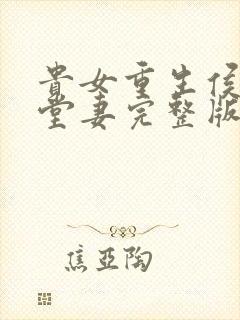 貴女重生侯
堂妻完整版
焦亚陶